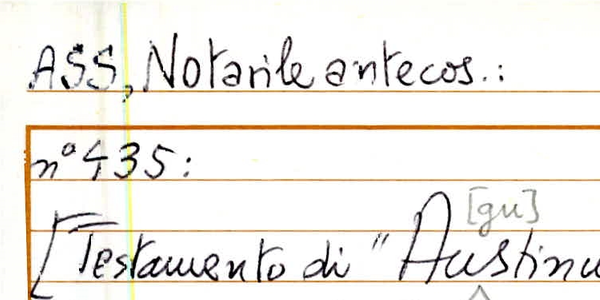 ASS, Notarile antecos.:
n° 435:
[gu]
[Testamento di "Austinu